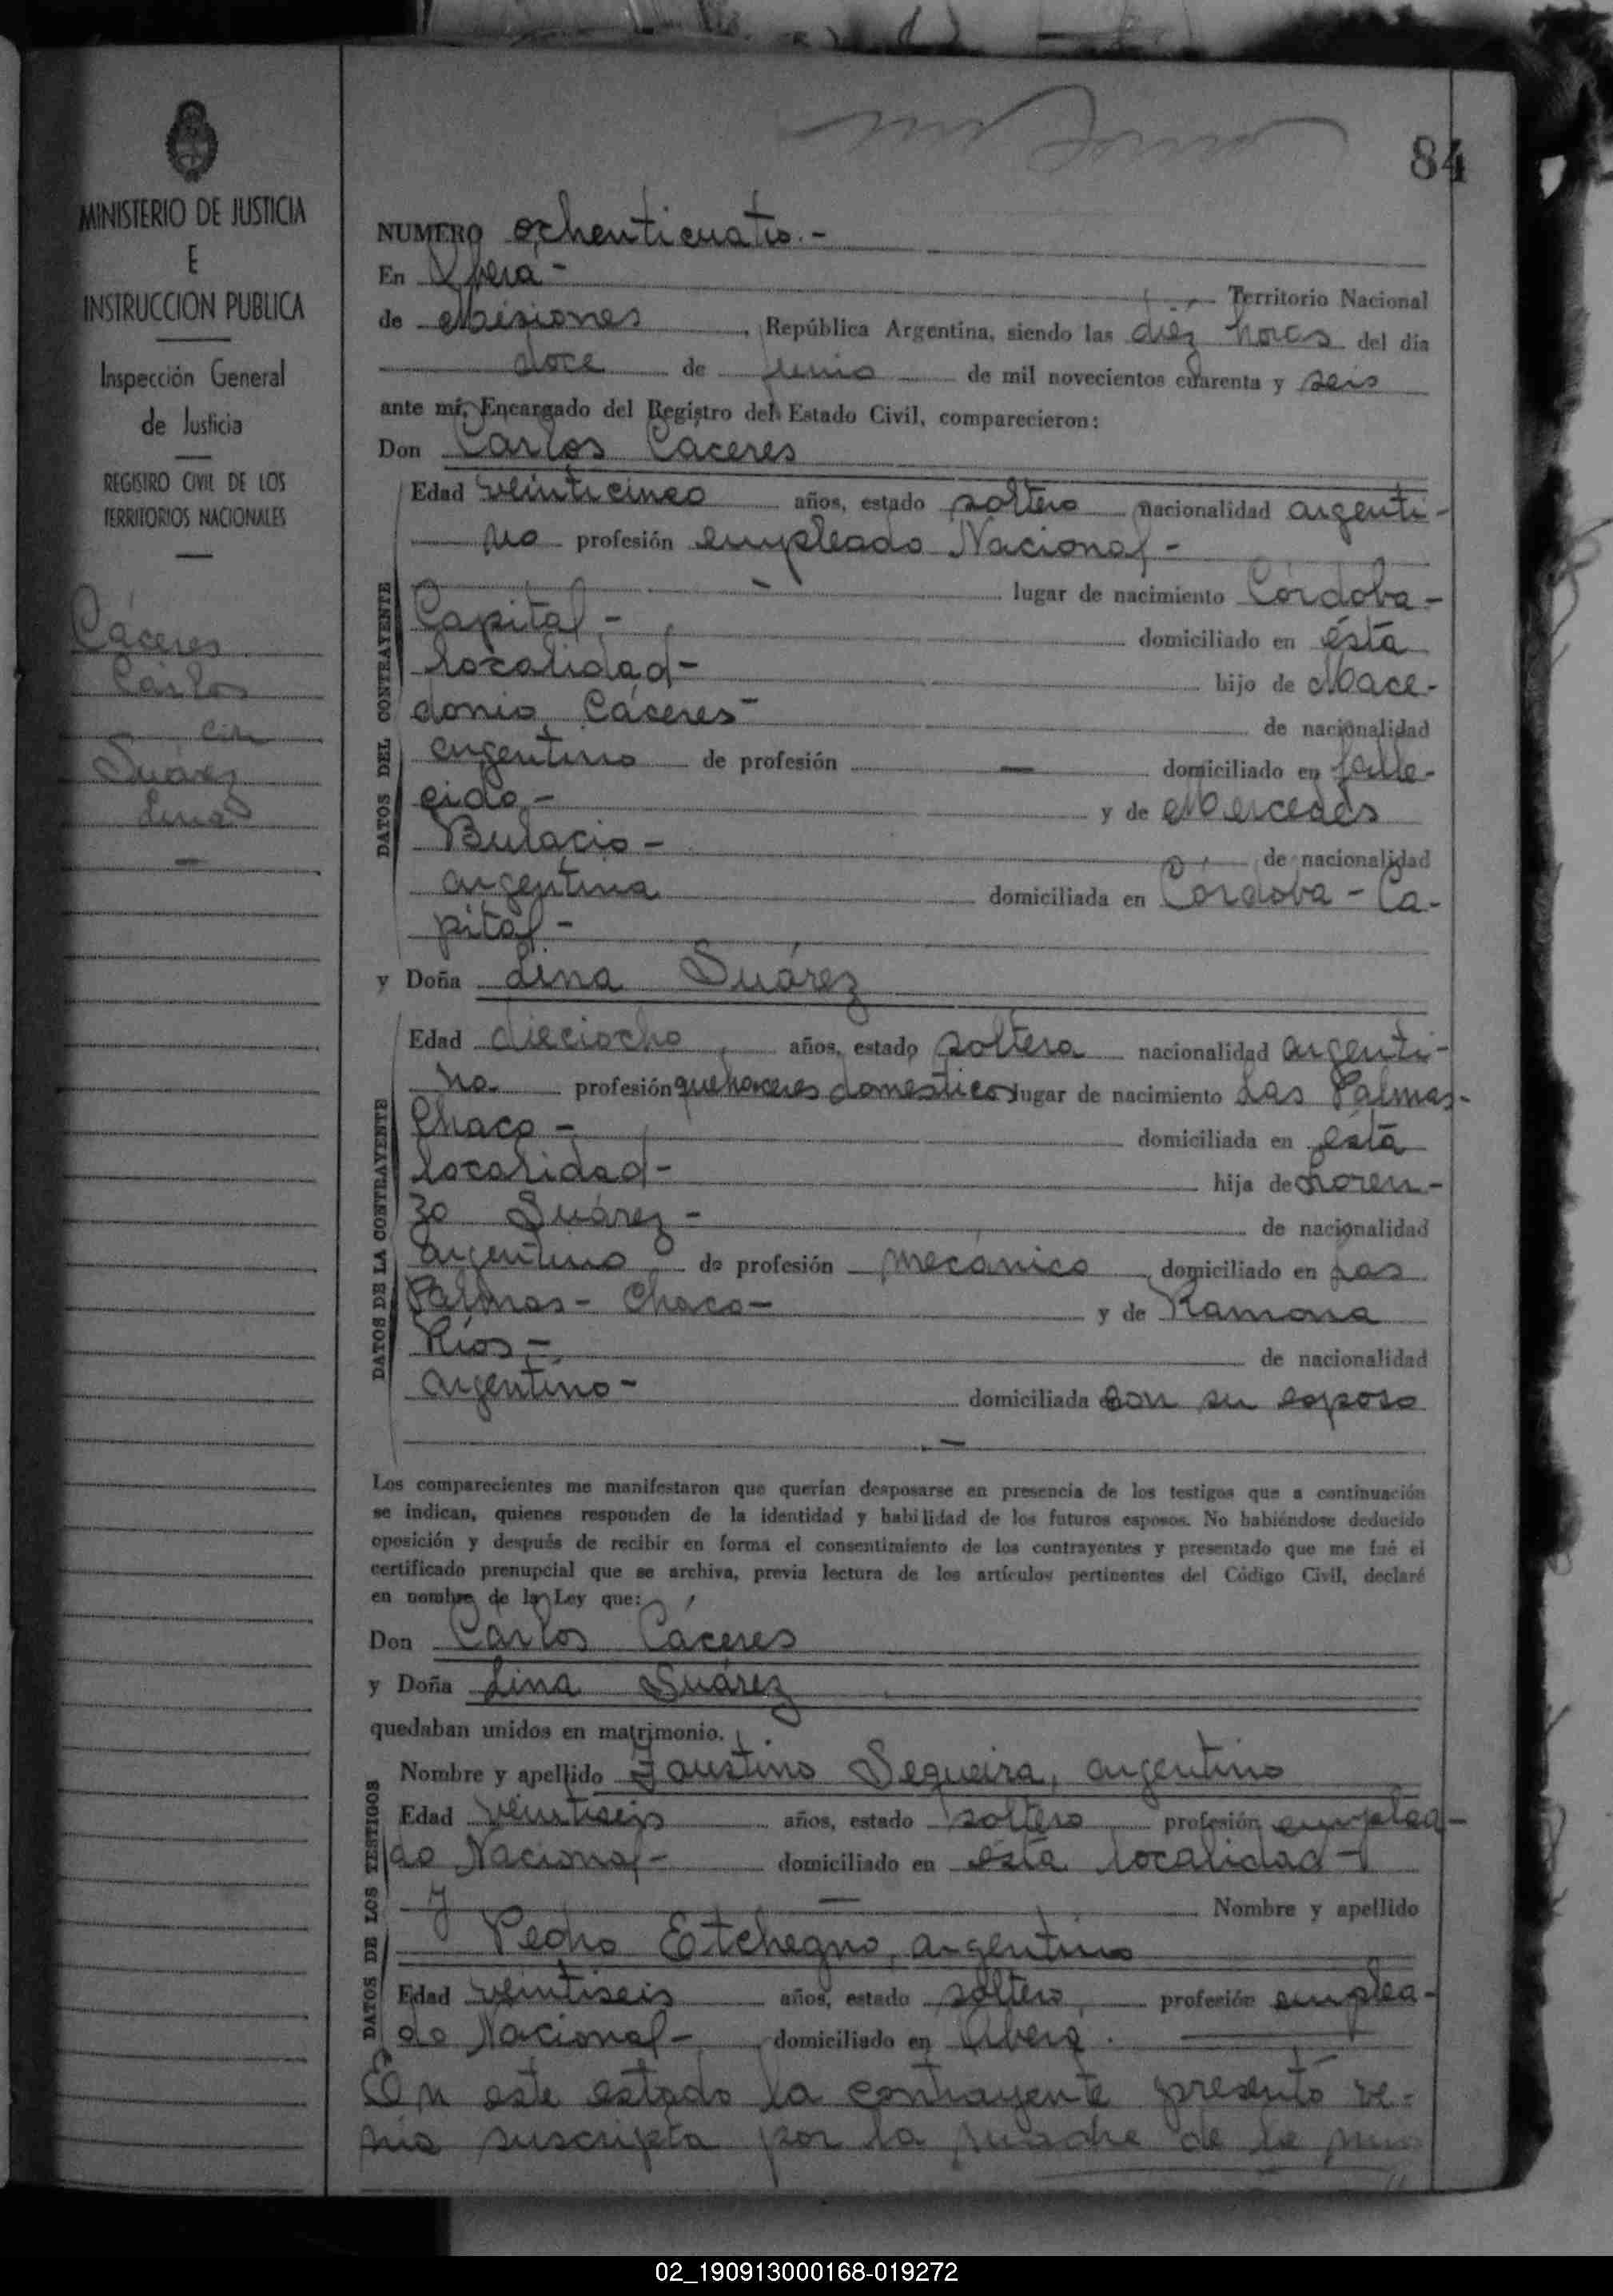 84
MINISTERIO DE JUSTICIA
E
INSTRUCCION PUBLICA
Inspección General
de Justicia
REGISTRO CIVIL DE LOS
TERRITORIOS NACIONALES
Cáceres
Carlos
con
Suárez
Lina
NUMERO ochenticuatro.-
En Oberá- Territorio Nacional
de Misiones, República Argentina, siendo las diez horas del día
doce de junio de mil novecientos cuarenta y seis
ante mí, Encargado del Registro del Estado Civil, comparecieron:
Don Carlos Cáceres
DATOS DEL CONTRAYENTE
Edad veinticinco años, estado soltero nacionalidad argenti-
no profesión empleado Nacional-
- lugar de nacimiento Córdoba-
Capital,- domiciliado en ésta
localidad- hijo de Mace-
donio Cáceres- de nacionalidad
argentino de profesión — domiciliado en falle-
cido,- y de Mercedes
Bulacio- de nacionalidad
argentina domiciliada en Córdoba- Ca-
pital-
y Doña Lina Suárez
DATOS DE LA CONTRAYENTE
Edad dieciocho años, estado soltera nacionalidad argenti-
na profesión quehaceres domesticos lugar de nacimiento Las Palmas-
Chaco- domiciliada en esta
localidad- hija de Loren-
zo Suárez- de nacionalidad
argentino de profesión mecánico, domiciliado en Las
Palmas- Chaco- y de Ramona
Ríos- de nacionalidad
argentino- domiciliada con su esposo
—
Los comparecientes me manifestaron que querían desposarse en presencia de los testigos que a continuación
se indican, quienes responden de la identidad y habilidad de los futuros esposos. No habiéndose deducido
oposición y después de recibir en forma el consentimiento de los contrayentes y presentado que me fué el
certificado prenupcial que se archiva, previa lectura de los artículos pertinentes del Código Civil, declaré
en nombre de la Ley que:
Don Carlos Cáceres
y Doña Lina Suárez
quedaban unidos en matrimonio.
DATOS DE LOS TESTIGOS
Nombre y apellido Faustino Sequeira, argentino
Edad veintiseis años, estado soltero profesión emplea-
do Nacional- domiciliado en ésta localidad-
y — Nombre y apellido
Pedro Etchegno, argentino
Edad veintiseis años, estado soltero, profesión emplea-
do Nacional- domiciliado en Oberá.
En este estado la contrayente presentó ve-
nia suscripta por la madre de la
02_190913000168-019272